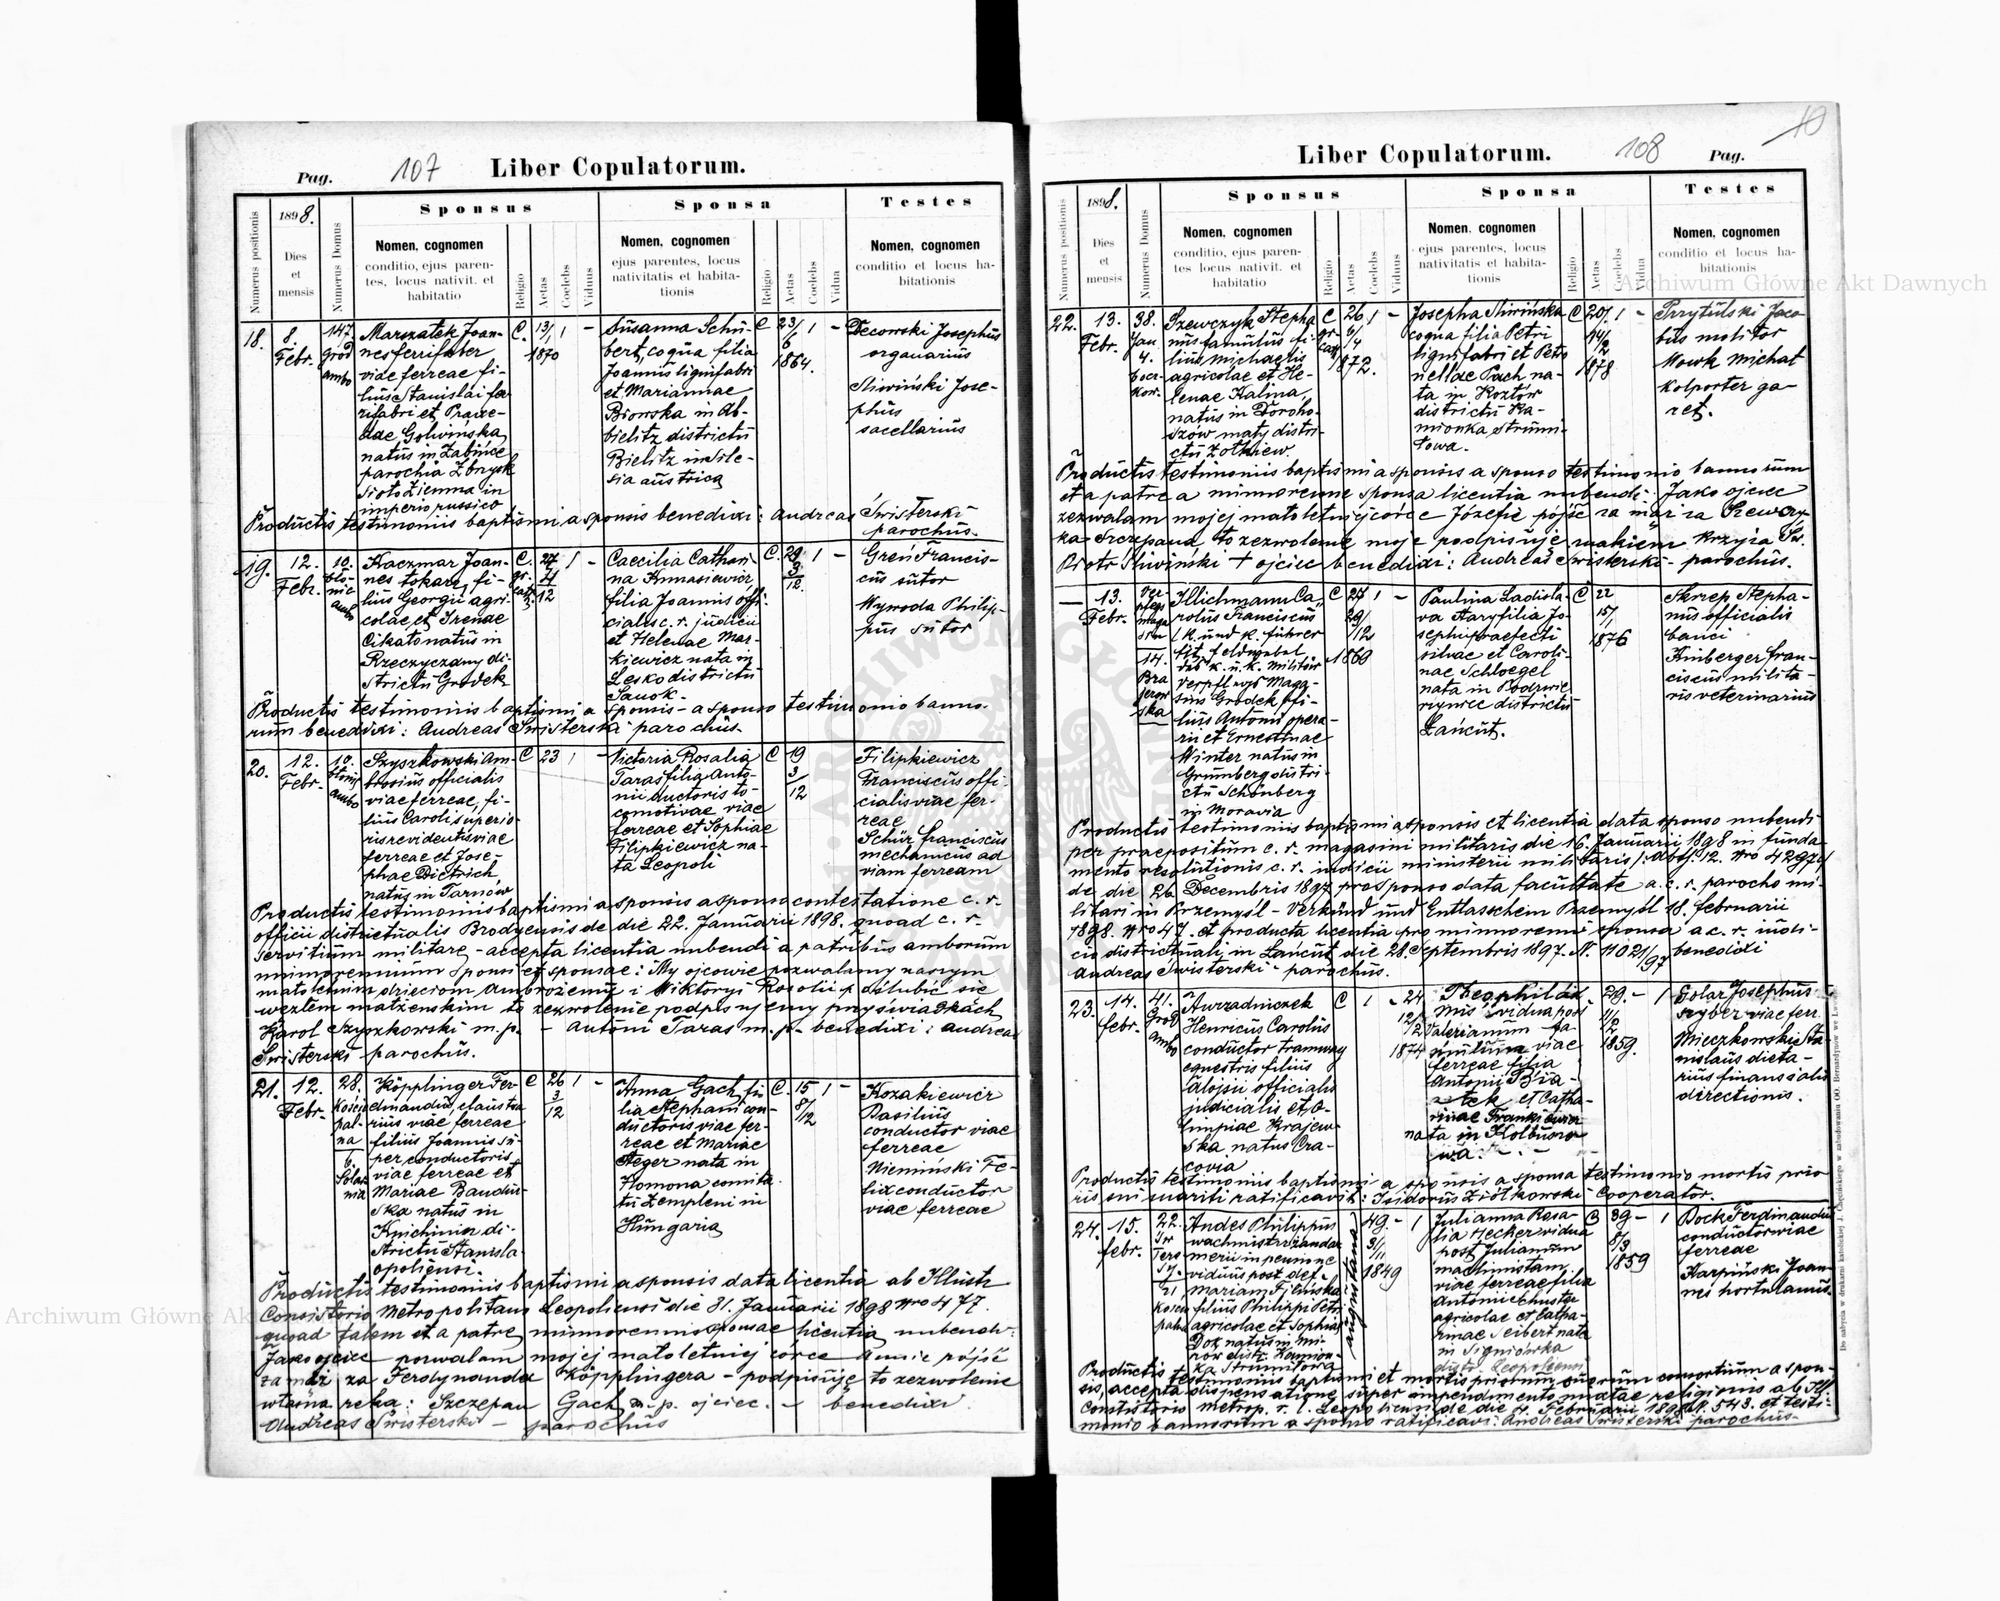 Pag. 107 Liber Copulatorum.
Numerus positionis
1898.
Dies
et
mensis
Numerus Domus
Sponsus
Nomen, cognomen
conditio, ejus paren-
tes, locus nativit. et
habitatio
Religio
Aetas
Coelebs
Viduus
Sponsa
Nomen, cognomen
ejus parentes, locus
nativitatis et habita-
tionis
Religio
Aetas
Coelebs
Vidua
Testes
Nomen, cognomen
conditio et locus ha-
bitationis
18.
8.
Febr.
147
grod
ambo
Marszałek Joan-
nes ferrifaber
viae ferreae fi-
lius Stanislai fer
rifabri et Praxe-
dae
natus in Żabince
parochia Zbrzyk
in
imperio russico
C.
13/1
1870
1
–
Susanna Schu-
bert, coqua filia
Joannis lignifabri
et Mariannae
Biowska in Alt-
bielitz districtu
Bielitz in Sile-
sia austrica
C
23/6
1864.
1
–
Decowski Josephus
organarius
Śliwiński Jose-
phus
sacellarius
Productis testimoniis baptismi a sponsis benedixi: Andreas Świsterski
parochus.
19.
12.
Febr.
10.
bło-
nie
ambo
Kaczmar Joan-
nes tokarz, fi-
lius Georgii agri-
colae et Irenae
Cikało natus in
Rzeczyczany di-
strictu Grodek
C.
gr.
cath.
27
4
12
1
–
Caecilia Cathari-
na Kunasiewicz
filia Joannis offi-
cialis c. r. judicii
et Helenae Mar-
kiewicz nata in
Lesko districtu
Sanok.
C.
29
3
12.
1
–
Greń Francis-
cus sutor
Wyroda Philip-
pus sutor
Productis testimoniis baptismi a sponsis – a sponso testimonio banno-
rum benedixi: Andreas Świsterski parochus.
20.
12.
Febr.
10.
błonie
ambo
Szyszkowski Am-
brosius officialis
viae ferreae, fi-
lius Caroli superio-
ris revidentis viae
ferreae et Jose-
phae Dietrich,
natus in Tarnów
C
23
1
–
Victoria Rosalia
Taras filia Anto-
nii ductoris lo-
comotivae viae
ferreae et Sophiae
Filipkiewicz na-
ta Leopoli
C
19
3
12
Filipkiewicz
Franciscus offi-
cialis viae fer-
reae
Schür Franciscus
mechanicus ad
viam ferream
Productis testimoniis baptismi a sponsis a sponso contestatione c. r.
officii districtualis Brodyensis de die 22. Januarii 1898. quoad c. r.
servitium militare – accepta licentia nubendi a patribus amborum
minorennium sponsi et sponsae: My ojcowie pozwalamy naszym
małoletnim dzieciom Ambrożemu i Wiktoryi Rosolii poślubić się
węzłem małżenskim to zezwolenie podpisujemy przy świadkach
Karol Szyszkowski m.p. – Antoni Taras m.p. benedixi: Andreas
Świsterski parochus.
21.
12.
Febr.
28.
Kości
pal-
na
6.
Solar
nia
Köpplinger Fer-
dinandus, claustra
rius viae ferreae
filius Joannis su-
per conductoris
viae ferreae et
Mariae Bandur-
ska natus in
Knichinin di-
strictu Stanisla-
opoliensi.
C
26
3
12
1
–
Anna Gach, fi-
lia Stephani con-
ductoris viae fer-
reae et Mariae
Steger nata in
Homona comita
tu Zempleni in
Hungaria
C.
15
8/12
1
–
Kozakiewicz
Basilius
conductor viae
ferreae
Niemiński Fe-
lix conductor
viae ferreae
Productis testimoniis baptismi a sponsis data licentia ab Illustr
Consistorio Metropolitano Leopoliensi die 31. Januarii 1898 Nro 477.
quoad talem et a patre minorennis sponsae licentia nubendi:
Jako ojciec pozwalam mojej małoletniej córce Annie pójść
za mąż za Ferdynanda Köpplingera – podpisuję to zezwolenie
własną ręką: Szczepan Gach m.p. ojciec. – benedixi
Andreas Świsterski – parochus
Liber Copulatorum. 108 Pag.
10
Numerus positionis
1898.
Dies
et
mensis
Numerus Domus
Sponsus
Nomen, cognomen
conditio, ejus paren-
tes locus nativit. et
habitatio
Religio
Aetas
Coelebs
Viduus
Sponsa
Nomen, cognomen
ejus parentes, locus
nativitatis et habita-
tionis
Religio
Aetas
Coelebs
Vidua
Testes
Nomen, cognomen
conditio et locus ha-
bitationis
22.
13.
Febr.
38.
Jan.
4.
Szewczyk Stepha
nus famulus fi-
lius Michaelis
agricolae et He-
lenae Kalina,
natus in Doroho-
szów mały distri-
ctu Żołkiew.
C
gr.
cath
26
6/4
1872.
1
–
Josepha Śliwińska
coqua filia Petri
lignifabri et Petro
nellae Pach na-
ta in Kozłów
districtu Ka-
mionka strumi-
łowa.
C
20
14/2
1878
1
–
Przytulski Jaco-
bus molitor
Mowk Michał
kolporter ga-
zet.
Productis testimoniis baptismi a sponsis a sponso testimonio bannorum
et a patre a minorenne sponsa licentia nubendi: Jako ojciec
zezwalam mojej małoletniej córce Józefie pójść za mąż za Szewczy
ka Szczepana to zezwolenie moje podpisuję znakiem krzyża Św.
Piotr Śliwiński + ojciec benedixi: Andreas Świsterski – parochus.
–
13.
Febr.
Ver-
pflegs
maga
sin
14.
Bra
jerow
ska
Illichmann Ca-
rolus Franciscus
k. und k. führer
tit. feldwebel
des k. u. k. Militär
Verpflegs Maga-
sins Grodek fi-
lius Antonii opera-
rii et Ernestinae
Winter natus in
Grumberg distri-
ctu Schönberg
in Moravia
C
27
29/12
1869
1
–
Paulina Ladisla-
va Hary filia Jo-
sephi praefecti
silvae et Caroli-
nae Schloegel
nata in
districtu
Łańcut.
C
22
15/1
1876
Skrzep Stepha-
nus officialis
banci
Kinberger Fran-
ciscus milita-
ris veterinarius
Productis testimoniis baptismi a sponsis et licentia data sponso nubendi
per praepositum c. r. magasini militaris die 16. Januarii 1898 in funda
mento resolutionis c. r. indicii ministerii militaris
de die 26 Decembris 1897 pro sponso data facultate a c. r. parocho mi-
litari in Przemyśl – Verkünd und Entlasschein Przemyśl 18. februarii
1898. Nro 47. et producta licentia pro minorenne sponsa a c. r. iudi-
cio districtuali in Łańcut die 28. Septembris 1897. benedixi
Andreas Świsterski – parochus.
23.
14.
febr.
41.
Grod
ambo
Awrzadniczek
Henricus Carolus
conductor tramway
equestris filius
Aloisii officialis
judicialis et O-
limpiae Krajew-
ska natus Cra-
covia
C
1
–
24
12/2
1874
Theophila
vidua post
Valerianum fa-
mulum viae
ferreae filia
Antonii Bia-
łek et Catha-
rinae Frankiewicz
nata in Kolbuszo
wa. – –
29. –
11/2
1859.
1
Golar Josephus
szyber viae ferr.
Mieczkowski Sta-
nislaus dieta-
rius finansialis
directionis.
Productis testimoniis baptismi a sponsis a sponsa testimonio mortis prio
ris sui mariti ratificavit: Isidorus Ziółkowski Cooperator.
24.
15.
febr.
22.
Andes Philippus
wachmistrz żandar
merii in pensione
viduus post def.
Mariam
filius Philippi Petri
agricolae et Sophiae
Doz natus in
distr. Kamion-
ka Strumiłowa
augustana
49. –
3/11
1849
1
Julianna Rosa-
lia Hecker vidua
post Julianum
machinistam
viae ferreae filia
Antonii Schuster
agricolae et Catha-
rinae Seibert nata
in Signiówka
distr. Leopoliensi
C
39 –
8/3
1859
1
Dock Ferdinandus
conductor viae
ferreae
Karpiński Joan-
nes hortulanus.
Productis testimoniis baptismi et mortis priorum suorum consortium a spon-
sis, accepta dispensatione super impedimento mixtae religionis ab Ill.
consistorio metrop. r. l. Leopoliensi de die 4. Februarii 1898 N. 543. et testi-
monio bannorum a sponso ratificavi: Andreas Świsterski parochus.
Archiwum Główne Akt Dawnych